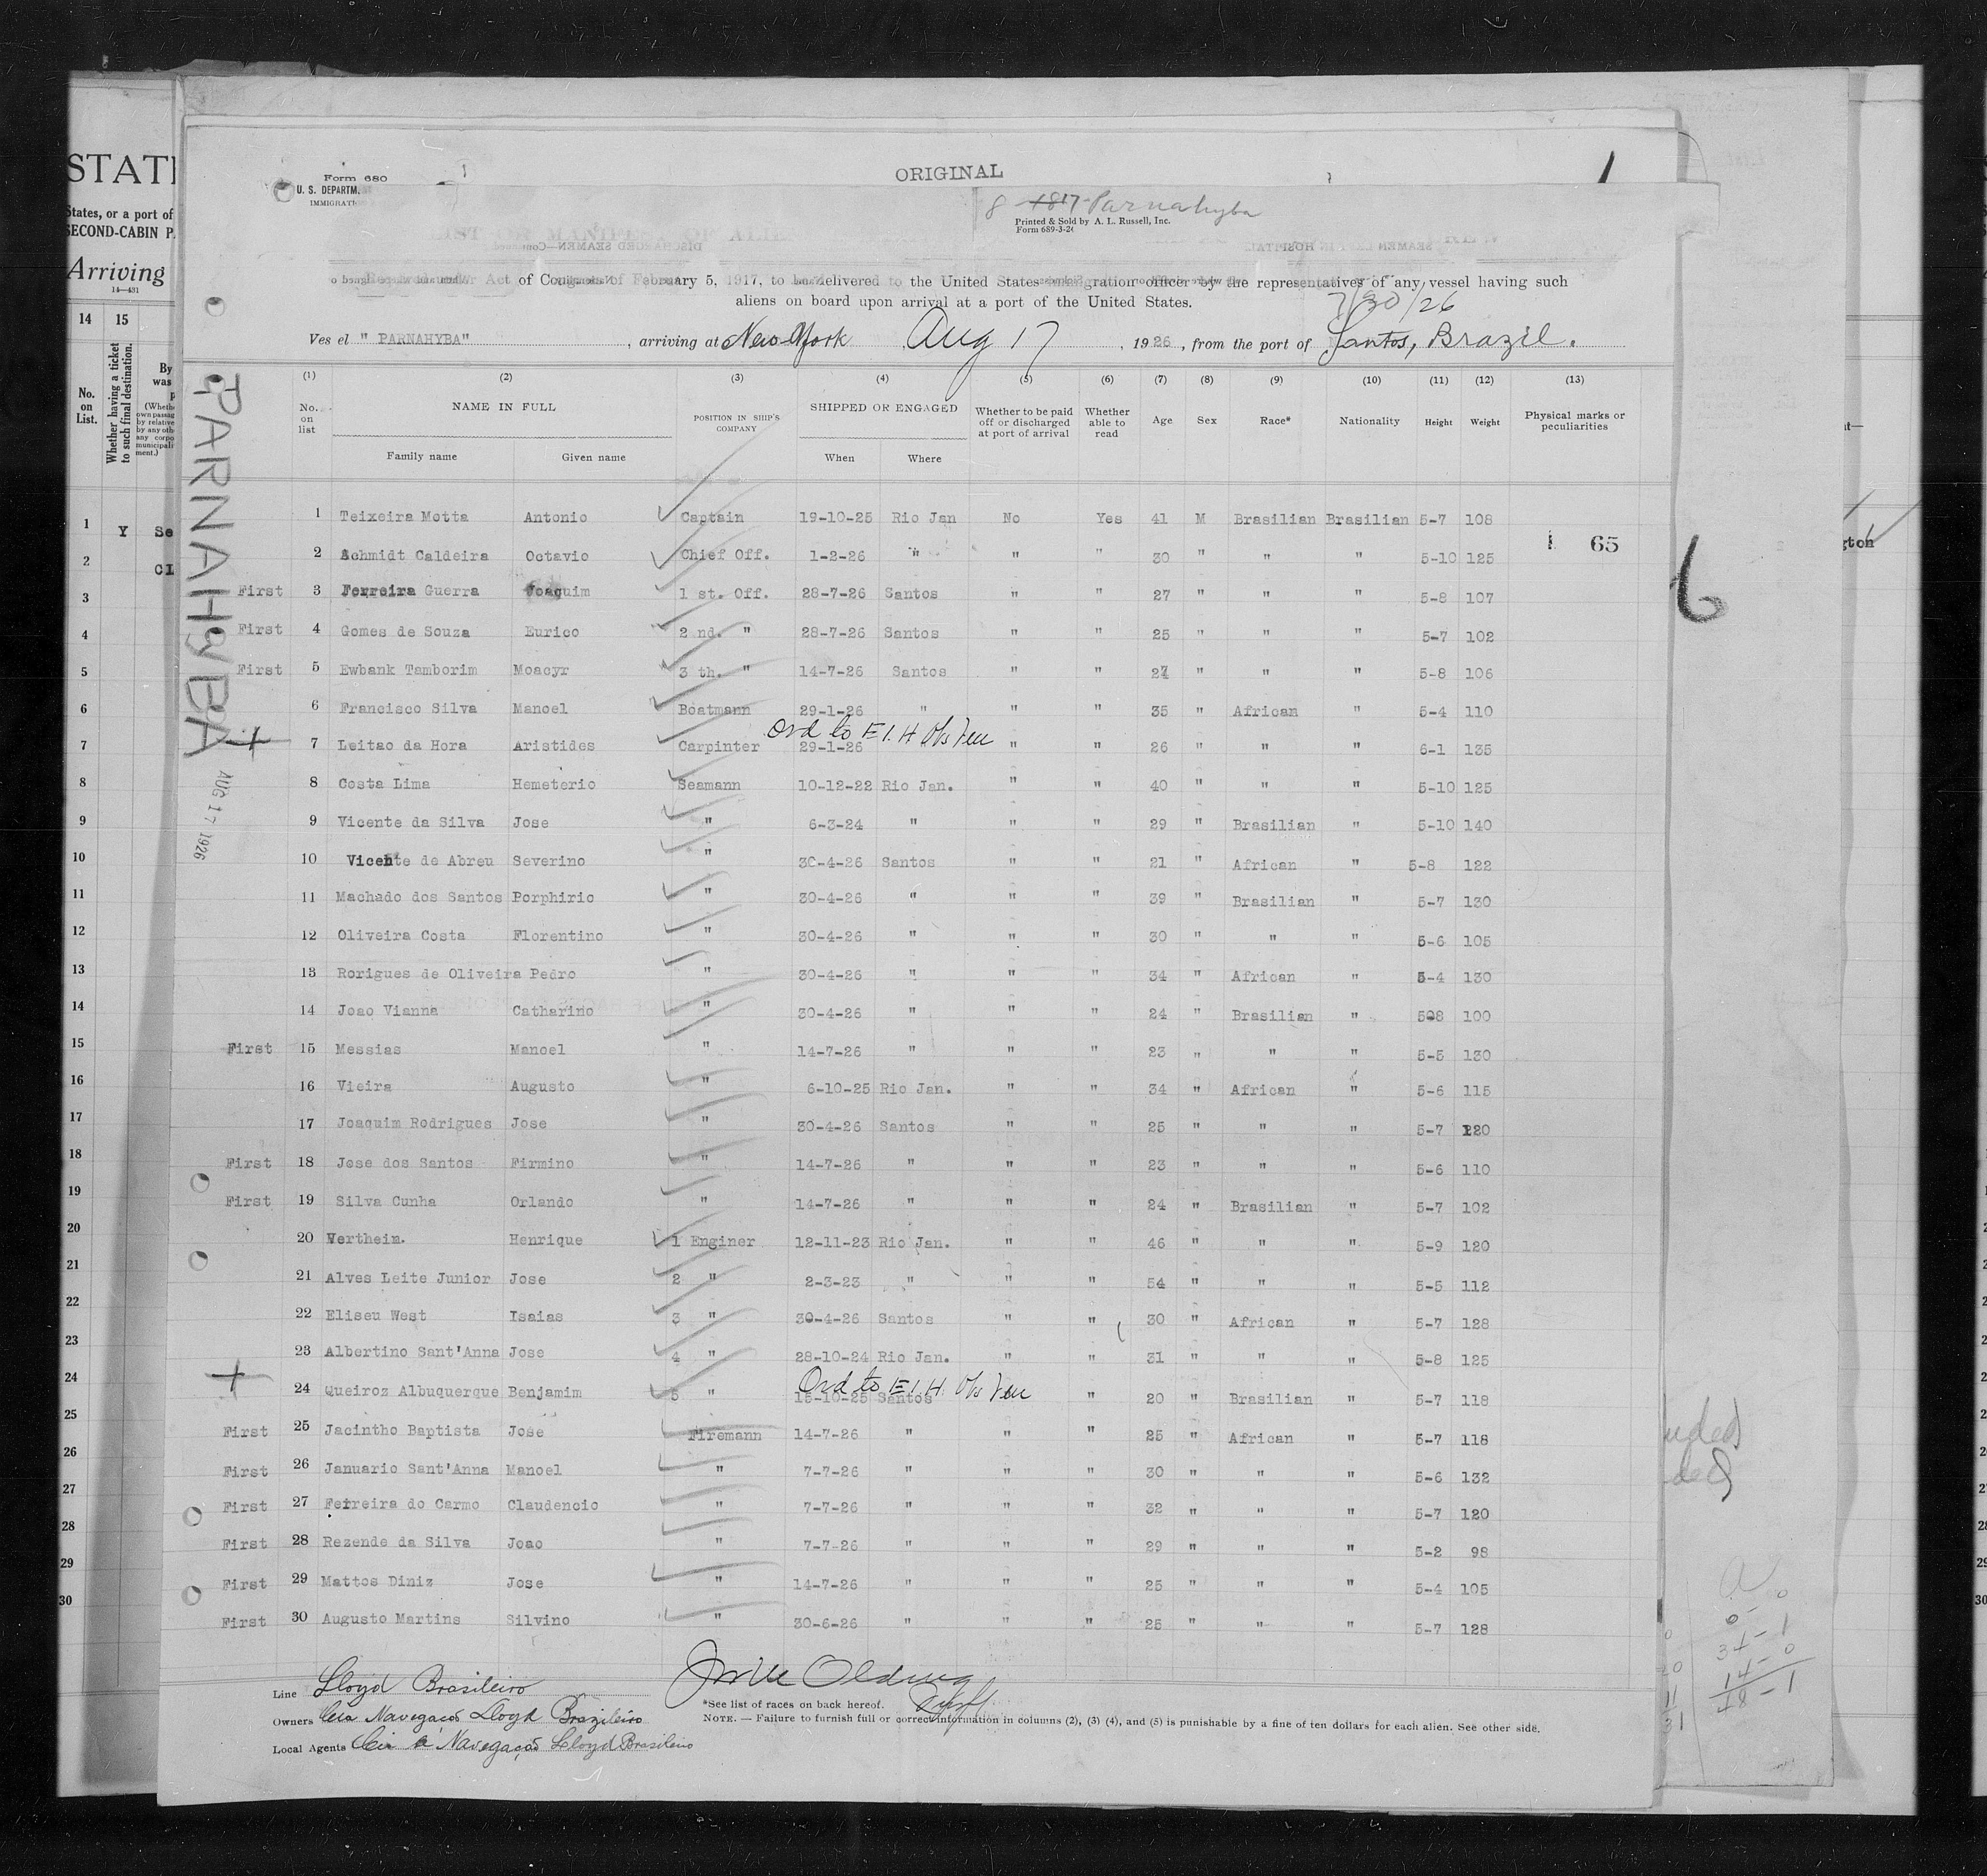 STATE
States, or a port of
SECOND-CABIN P
Arriving
14—431
14 15
No. on List.
Whether having a ticket to such final destination.
Form 680
U. S. DEPARTM
IMMIGRATI
ORIGINAL
1
8 1817 Parnahyba
Printed & Sold by A. L. Russell, Inc.
Form 689-3-24
LIST OR MANIFEST OF ALIE
Act of Congress of February 5, 1917, to be delivered to the United States immigration officer by the representatives of any vessel having such
aliens on board upon arrival at a port of the United States.
7/30/26
Ves el " PARNAHYBA" , arriving at New York Aug 17 , 1926 , from the port of Santos, Brazil.
(1) (2) (3) (4) (5) (6) (7) (8) (9) (10) (11) (12) (13)
No. on list NAME IN FULL POSITION IN SHIP'S COMPANY SHIPPED OR ENGAGED Whether to be paid off or discharged at port of arrival Whether able to read Age Sex Race* Nationality Height Weight Physical marks or peculiarities
Family name Given name When Where
PARNAHYBA
AUG 17 1926
1 Teixeira Motta Antonio Captain 19-10-25 Rio Jan No Yes 41 M Brasilian Brasilian 5-7 108
65
2 Schmidt Caldeira Octavio Chief Off. 1-2-26 " " " 30 " " " 5-10 125
First 3 Ferreira Guerra Joaquim 1 st. Off. 28-7-26 Santos " " 27 " " " 5-8 107
First 4 Gomes de Souza Eurico 2 nd. " 28-7-26 Santos " " 25 " " " 5-7 102
First 5 Ewbank Tamborim Moacyr 3 th. " 14-7-26 Santos " " 27 " " " 5-8 106
6 Francisco Silva Manoel Boatmann 29-1-26 " " " 35 " African " 5-4 110
Ord to E I. H
7 Leitao da Hora Aristides Carpinter 29-1-26 " " 26 " " " 6-1 135
8 Costa Lima Hemeterio Seamann 10-12-22 Rio Jan. " " 40 " " " 5-10 125
9 Vicente da Silva Jose " 6-3-24 " " " 29 " Brasilian " 5-10 140
10 Vicente de Abreu Severino " 30-4-26 Santos " " 21 " African " 5-8 122
11 Machado dos Santos Porphirio " 30-4-26 " " " 39 " Brasilian " 5-7 130
12 Oliveira Costa Florentino " 30-4-26 " " " 30 " " " 5-6 105
13 Rorigues de Oliveira Pedro " 30-4-26 " " " 34 " African " 5-4 130
14 Joao Vianna Catharino " 30-4-26 " " " 24 " Brasilian " 508 100
First 15 Messias Manoel " 14-7-26 " " " 23 " " " 5-5 130
16 Vieira Augusto " 6-10-25 Rio Jan. " " 34 " African " 5-6 115
17 Joaquim Rodrigues Jose " 30-4-26 Santos " " 25 " " " 5-7 120
First 18 Jose dos Santos Firmino " 14-7-26 " " " 23 " " " 5-6 110
First 19 Silva Cunha Orlando " 14-7-26 " " " 24 " Brasilian " 5-7 102
20 Vertheim. Henrique 1 Enginer 12-11-23 Rio Jan. " " 46 " " " 5-9 120
21 Alves Leite Junior Jose 2 " 2-3-23 " " " 54 " " " 5-5 112
22 Eliseu West Isaias 3 " 30-4-26 Santos " " 30 " African " 5-7 128
23 Albertino Sant'Anna Jose 4 " 28-10-24 Rio Jan. " " 31 " " " 5-8 125
Ord to E.I.H.
24 Queiroz Albuquerque Benjamim 5 " 15-10-25 Santos " 20 " Brasilian " 5-7 118
First 25 Jacintho Baptista Jose Firemann 14-7-26 " " " 25 " African " 5-7 118
First 26 Januario Sant'Anna Manoel " 7-7-26 " " " 30 " " " 5-6 132
First 27 Ferreira do Carmo Claudencio " 7-7-26 " " " 32 " " " 5-7 120
First 28 Rezende da Silva Joao " 7-7-26 " " " 29 " " " 5-2 98
First 29 Mattos Diniz Jose " 14-7-26 " " " 25 " " " 5-4 105
First 30 Augusto Martins Silvino " 30-6-26 " " " 25 " " " 5-7 128
6
Line Lloyd Brasileiro
*See list of races on back hereof.
Owners Cia Navegacao Lloyd Brazileiro
NOTE. — Failure to furnish full or correct information in columns (2), (3) (4), and (5) is punishable by a fine of ten dollars for each alien. See other side.
Local Agents Cia a Navegação Lloyd Brasileiro